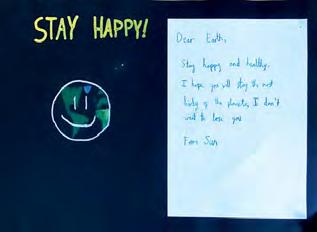 STAY HAPPY!
Dear Earth,
Stay happy and healthy.
I hope you will stay the most
lively of the planets, I don't
want to lose you
From Sun